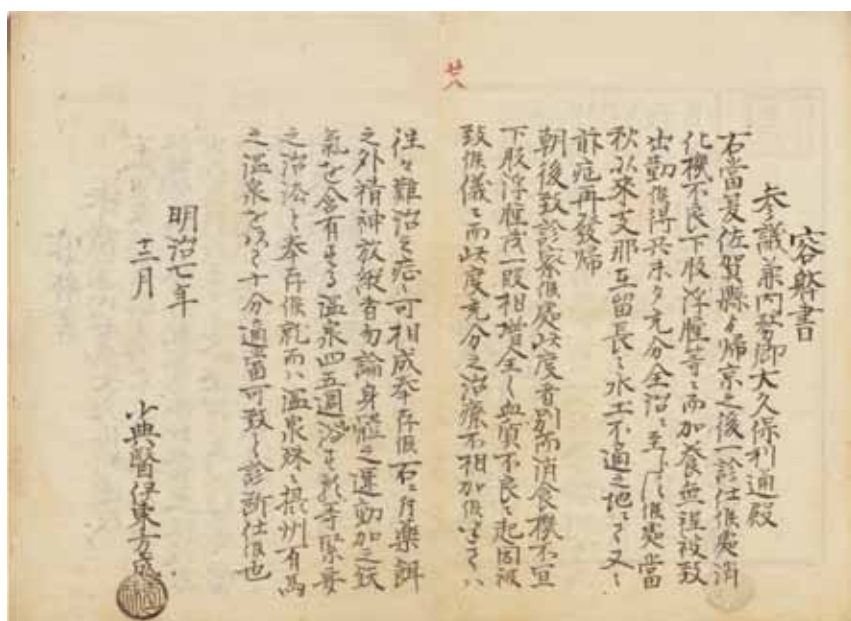 廿八
容躰書
参議兼内務卿大久保利通殿
右當夏佐賀縣ゟ帰京之後一診仕候處消
化機不良下肢浮腫等ニ而加養無程被致
出勤候得共未タ充分全治ニ至ラズ候處當
秋以来支那互留長之水土不適之地ニテ又々
前症再發帰
朝後致診察候處此度者別而消食機不宜
下肢浮腫茂一段相増全ク血質不良ゟ起因被
致候儀ニ而此度充分之治療不相加候半テハ
往々難治之症ニ可相成奉存候右ニ付薬餌
之外精神放緩者勿論身體之運動加之鉄
氣を含有する温泉四五週浴する等緊要
之治法ト奉存候就而ハ温泉殊ニ摂州有馬
之温泉を以テ十分適當可致ト診断仕候也
明治七年
十二月
少典醫伊東方成